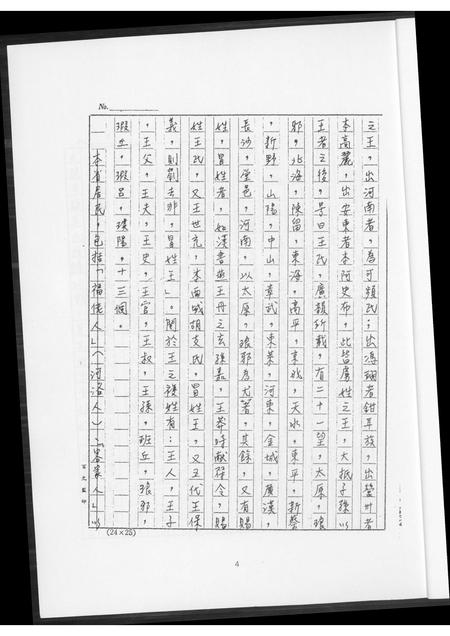 No.
之王，出河南者，為可頻氏；出馮翊者鉗耳族，出營州者
本高麗，出安東者本阿史布，此皆虜姓之王，大抵子孫以
王者之後，号曰王氏，廣韻所載，有二十一望，太原，琅
邪，北海，陳留，東海，高平，京兆，天水，東平，新蔡
，新野，山陽，中山，章武，東萊，河東，金城，廣漢，
長沙，堂邑，河南，以太原，琅邪為尤著，其餘，又有賜
姓，冒姓者，如漢書燕王丹之玄孫嘉，王莽時献符令，賜
姓王氏，又王世充，本西域胡支氏，冒姓王，又五代王保
義，則劉去非，冒姓王」。関於王之複姓有：王人，王子
，王父，王夫，王史，王官，王叔，王孫，班丘，琅邪，
瑕丘，瑕呂，璞陽，十三個。
一 本省居民，包括「福佬人」（河洛人）「客家人」以
(24×25)
4